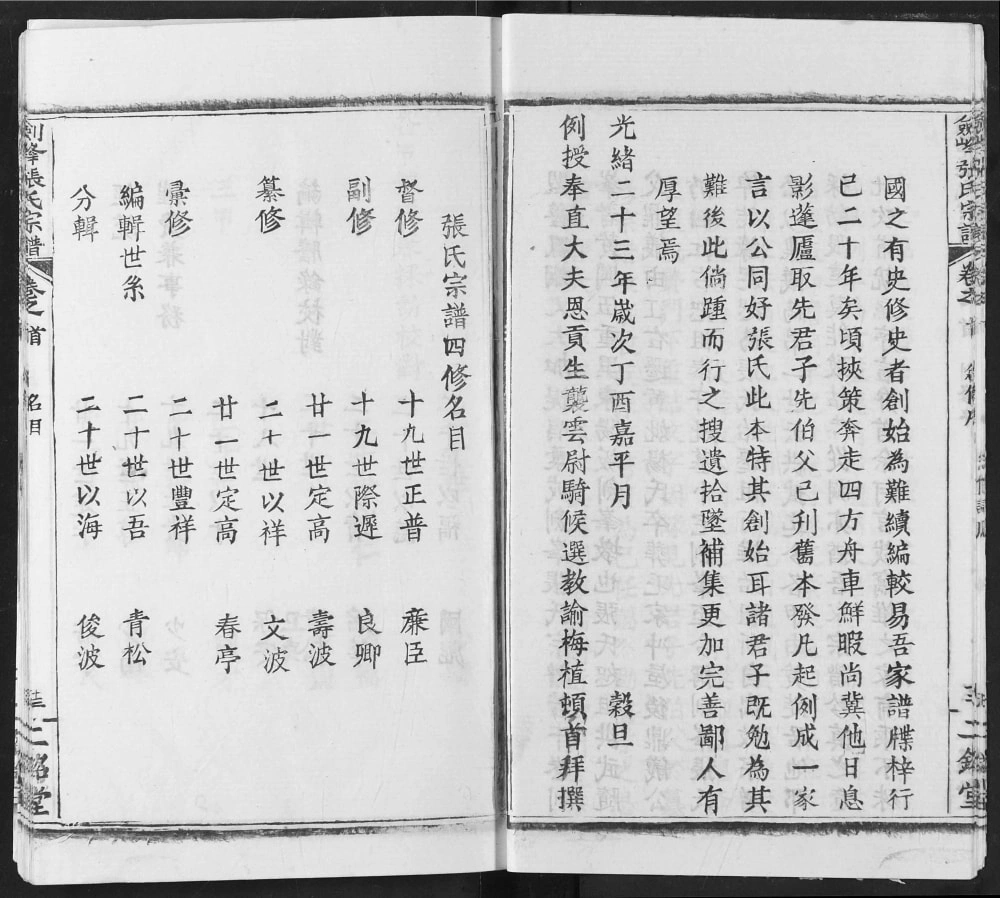 劍峰張氏宗譜 卷之首
國之有史修史者創始為難續編較易吾家譜牒梓行
已二十年矣頃挾策奔走四方舟車鮮暇尚冀他日息
影蓬廬取先君子先伯父已刋舊本發凡起例成一家
言以公同好張氏此本特其創始耳諸君子既勉為其
難後此倘踵而行之搜遺拾墜補集更加完善鄙人有
厚望焉
光緒二十三年歲次丁酉嘉平月 穀旦
例授奉直大夫恩貢生襲雲尉騎候選教諭梅植頓首拜撰
張氏宗譜四修名目
督修 十九世正普 廉臣
副修 十九世際遲 良卿
廿一世定高 壽波
纂修 二十世以祥 文波
廿一世定高 春亭
彙修 二十世豐祥
編輯世系 二十世以吾 青松
分輯 二十世以海 俊波
劍峰張氏宗譜 卷之首 名目 二銘堂